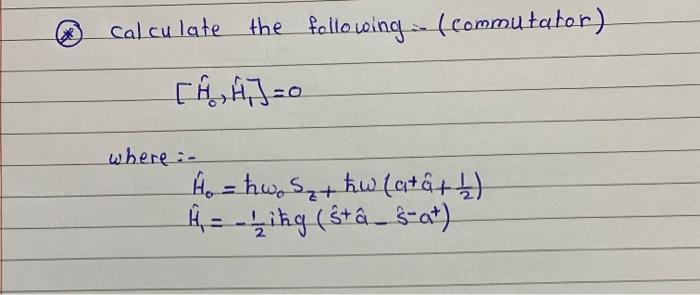 ⊛ Calculate the following :- (commutator)
[Ĥ₀, Ĥ₁] = 0
where :-
Ĥ₀ = ħω₀ S_z + ħω (a⁺â + 1/2)
Ĥ₁ = - 1/2 iħg (ŝ⁺â - ŝ⁻a⁺)